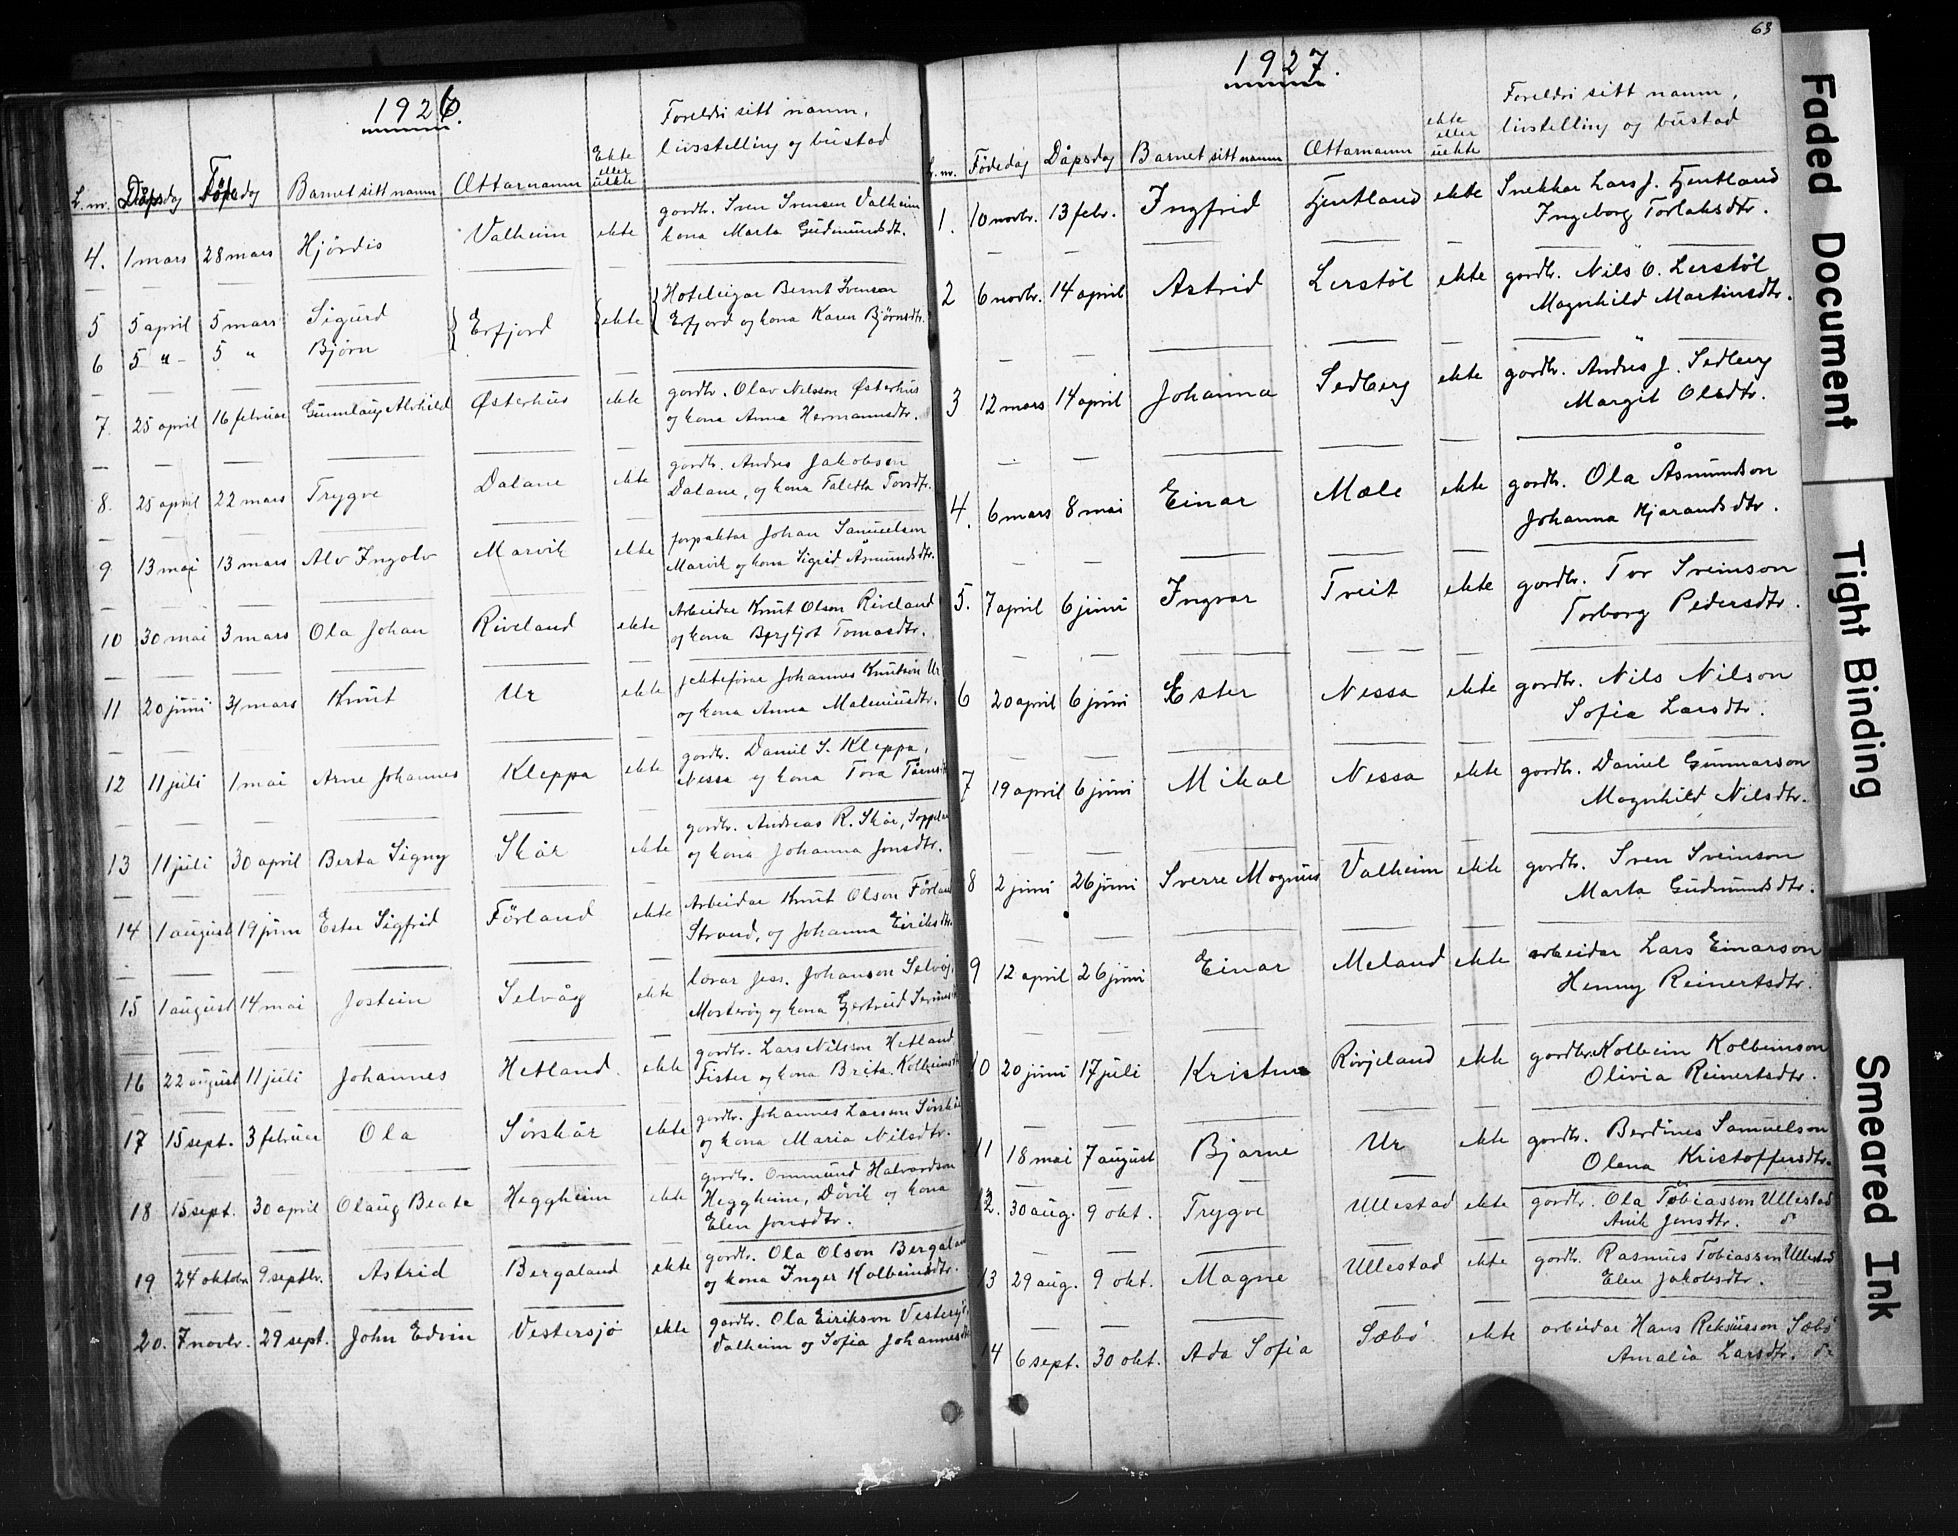 1926.
L. nr. Dåpsdag Fødedag Barnet sitt namn Ættarnamn Ekte eller uekte Foreldri sitt namn, livsstelling og bustad
4. 1 mars 28 mars Hjørdis Valheim ekte gardbr. Sven Svensen Valheim
kona Marta Gudmundsdt.
5 5 april 5 mars Sigurd } Erfjord { ekte { Hoteleigar Bernt Svenson
6 5 " - 5 " Bjørn Erfjord og kona Karen Bjørnsdtr.
7. 25 april 16 februar Gunnlaug Alvhild Østerhus ekte gardbr. Olav Nilsson Østerhus
og kona Anna Hermannsdtr.
8. 25 april 22 mars Trygve Dalane ekte gardbr. Andres Jakobson
Dalane, og kona Taletta Torsdtr.
9 13 mai 13 mars Alv Ingolv Marvik ekte forpaktar Johan Samuelson
Marvik og kona Sigrid Åsmundsdtr.
10 30 mai 3 mars Ola Johan Riveland ekte Arbeidar Knut Olson Riveland
og kona Bergljot Tomasdtr.
11 20 juni 31 mars Knut Ur ekte jekteførar Johannes Knutson Ur
og kona Anna Malmindtr.
12 11 juli 1 mai Arne Johannes Kleppa ekte gardbr. Daniel S. Kleppa,
Nessa og kona Tora
13 11 juli 30 april Berta Signy Skår ekte gardbr. Andreas R. Skår,
og kona Johanna Jonsdtr.
14 1 august 19 juni Ester Sigfrid Førland ekte Arbeidar Knut Olson Førland
Strand, og Johanna Eiriksdtr.
15 1 august 14 mai Jostein Selvåg ekte lærar Jess. Johanson Selvåg,
Mosterøy og kona Gjertrud
16 22 august 11 juli Johannes Hetland ekte gardbr. Lars Nilsson Hetland,
Fister og kona Brita Kolbeinsdtr.
17 15 sept. 3 februar Ola Sørskår ekte gardbr. Johannes Larson Sørskår
og kona Maria Nilsdtr.
18 15 sept. 30 april Olaug Beate Heggheim ekte gardbr. Ommund Halvardson
Heggheim, Døvik og kona
Elen Jonsdtr.
19 24 oktobr 9 septbr. Astrid Bergaland ekte gardbr. Ola Olson Bergaland
og kona Inger Kolbeinsdtr.
20. 7 novbr. 29 sept. John Edvin Vestersjø ekte gardbr. Ola Eirikson Vestersjø,
Valheim og Sofia Johannesdtr
63
1927.
L. nr. Fødedag Dåpsdag Barnet sitt namn Ættarnamn ekte eller uekte Foreldri sitt namn, livsstelling og bustad
1. 10 novbr. 13 febr. Ingfrid Fjentland ekte Snekkar Lars J. Fjentland
Ingeborg Torlaksdtr.
2 6 novbr. 14 april Astrid Lerstøl ekte gardbr. Nils O. Lerstøl
Magnhild Martinsdtr.
3 12 mars 14 april Johanna Sedberg ekte gardbr. Andres J. Sedberg
Margit Olsdtr.
4. 6 mars 8 mai Einar Mæle ekte gardbr. Ola Åsmundson
Johanna Kjarandsdtr.
5. 7 april 6 juni Ingvar Tveit ekte gardbr. Tor Sveinson
Torborg Pedersdtr.
6 20 april 6 juni Ester Nessa ekte gardbr. Nils Nilson
Sofia Larsdtr.
7 19 april 6 juni Mikal Nessa ekte gardbr. Daniel Gunnarson
Magnhild Nilsdtr.
8 2 juni 26 juni Sverre Magnus Valheim ekte gardbr. Sven Sveinson
Marta Gudmundsdtr.
9 12 april 26 juni Einar Meland ekte arbeidar Lars Einarson
Henny Reinertsdtr.
10 20 juni 17 juli Kristine Røvjeland ekte gardbr. Kolbein Kolbeinson
Olivia Reinertsdtr.
11 18 mai 7 august Bjarne Ur ekte gardbr. Berdines Samuelson
Olena Kristoffersdtr.
12. 30 aug. 9 okt. Trygve Ullestad ekte gardbr. Ola Tobiasson Ullestad
Anik Jonsdtr.
13 29 aug. 9 okt. Magne Ullestad ekte gardbr. Rasmus Tobiasson Ullestad
Elen Jakobsdtr.
14 6 sept. 30 okt. Ada Sofia Sæbø ekte arbeidar Hans Sæbø
Amalia Larsdtr.
Faded Document
Tight Binding
Smeared Ink